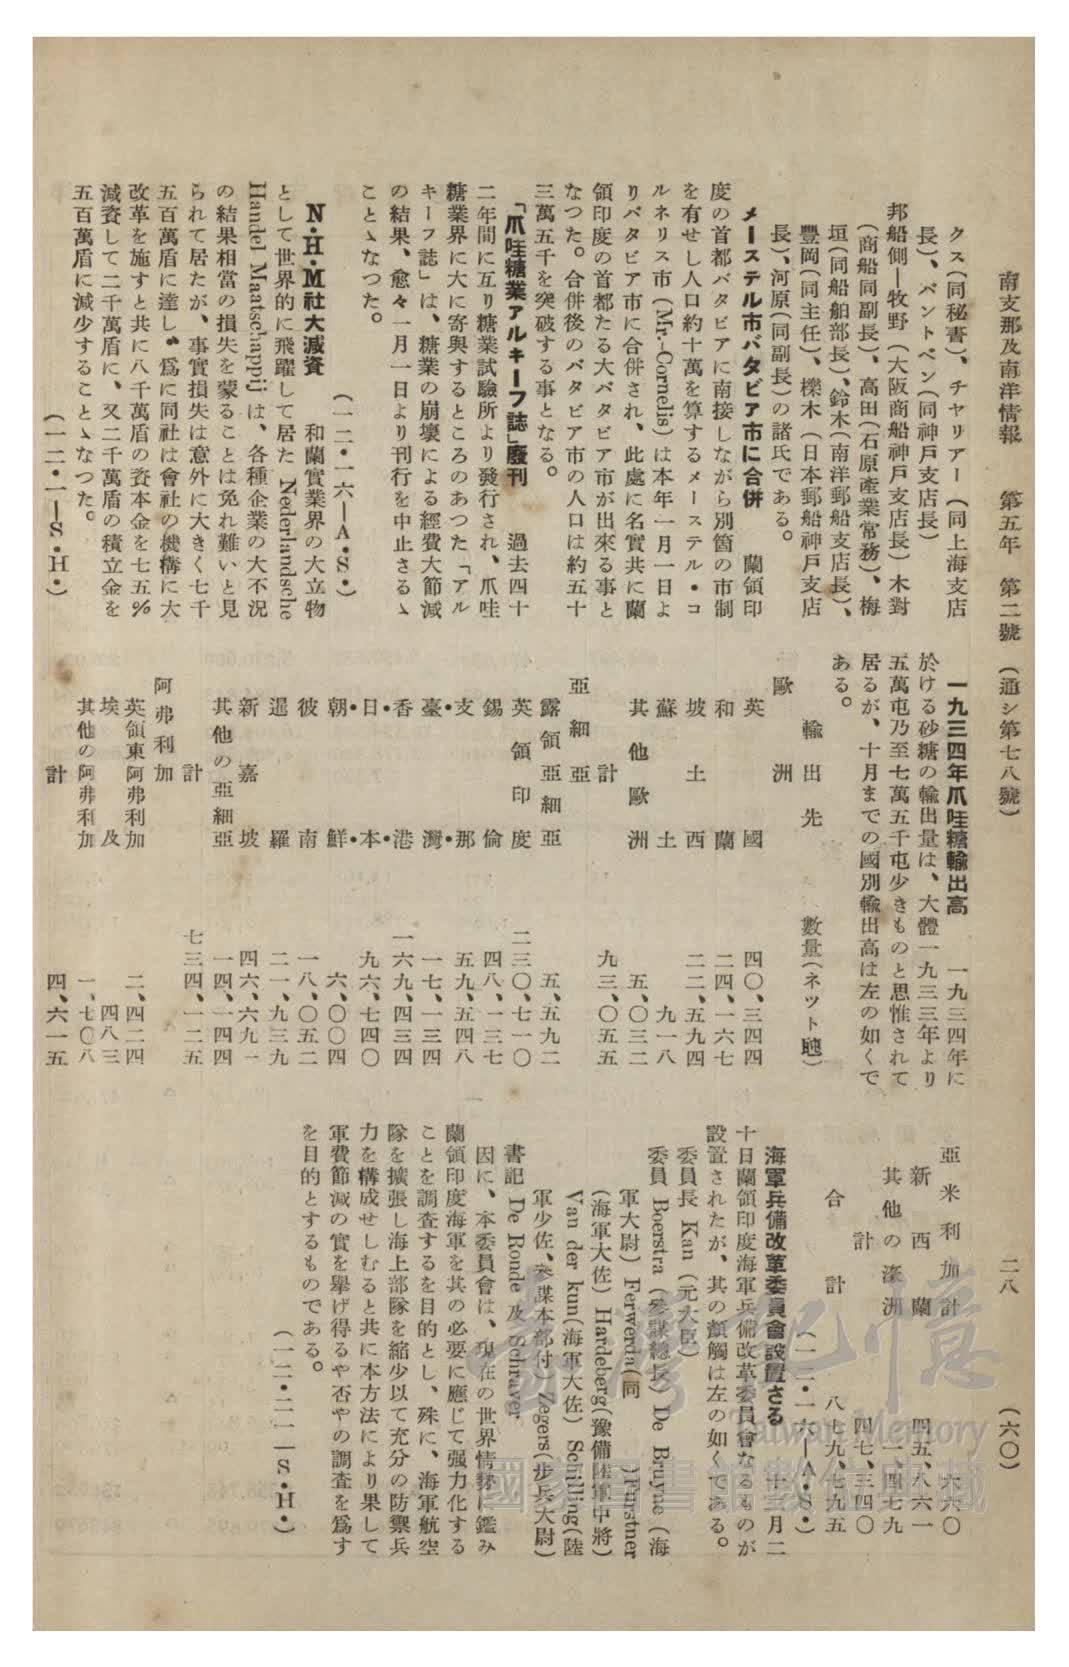 南支那及南洋情報　第五年　第二號　（通シ第七八號）　二八　（六〇）
クス（同秘書）、チヤリアー（同上海支店
長）、バントベン（同神戸支店長）
邦船側—牧野（大阪商船神戸支店長）木對
（商船同副長）、高田（石原產業常務）、梅
垣（同船舶部長）、鈴木（南洋郵船支店長）、
豐岡（同主任）、櫟木（日本郵船神戸支店
長）、河原（同副長）の諸氏である。
メーステル市バタビア市に合併　蘭領印
度の首都バタビアに南接しながら別箇の市制
を有せし人口約十萬を算するメーステル・コ
ルネリス市（Mr.-Cornelis）は本年一月一日よ
りバタビア市に合併され、此處に名實共に蘭
領印度の首都たる大バタビア市が出來る事と
なつた。合併後のバタビア市の人口は約五十
三萬五千を突破する事となる。
「爪哇糖業アルキーフ誌」廢刊　過去四十
二年間に亙り糖業試驗所より發行され、爪哇
糖業界に大に寄與するところのあつた「アル
キーフ誌」は、糖業の崩壞による經費大節減
の結果、愈々一月一日より刊行を中止さるゝ
ことゝなつた。
（一二・一六—A・S・）
N・H・M社大減資　和蘭實業界の大立物
として世界的に飛躍して居た Nederlandsche
Handel Maatschappij は、各種企業の大不況
の結果相當の損失を蒙ることは免れ難いと見
られて居たが、事實損失は意外に大きく七千
五百萬盾に達し、爲に同社は會社の機構に大
改革を施すと共に八千萬盾の資本金を七五%
減資して二千萬盾に、又二千萬盾の積立金を
五百萬盾に減少することゝなつた。
（一二・二一—S・H・）
一九三四年爪哇糖輸出高　一九三四年に
於ける砂糖の輸出量は、大體一九三三年より
五萬屯乃至七萬五千屯少きものと思惟されて
居るが、十月までの國別輸出高は左の如くで
ある。
輸出先　數量（ネット瓲）
歐洲
英國　四〇、三四四
和蘭　二四、一六七
坡土西　二二、五九四
蘇土　九一八
其他歐洲　五、〇三二
計　九三、〇五五
亞細亞
露領亞細亞　五、五九二
英領印度　二三〇、七一〇
錫倫　四八、一三七
支・那　五九、五四八
臺・灣・　一七、一三四
香・港　一六九、四三四
日・本・　九六、七四〇
朝・鮮・　六、〇〇四
彼南　一八、〇五二
暹羅　二一、九三九
新嘉坡　四六、六九一
其他の亞細亞　一四、一四四
計　七三四、一二五
阿弗利加
英領東阿弗利加　二、四二四
埃及　四八三
其他の阿弗利加　一、七〇八
計　四、六一五
亞米利加計　六六〇
新西蘭　四五、八六一
其他の濠洲　一、四七九
計　四七、三四〇
合計　八七九、七九五
（一二・一六—A・S・）
海軍兵備改革委員會設置さる　十二月二
十日蘭領印度海軍兵備改革委員會なるものが
設置されたが、其の顏觸は左の如くである。
委員長 Kan（元大臣）
委員 Boerstra（參謀總長）De Bruyne（海
軍大尉）Ferwerda（同　）Furstner
（海軍大佐）Hardeberg（豫備陸軍中將）
Van der kun（海軍大佐）Schilling（陸
軍少佐、參謀本部付）Zegers（步兵大尉）
書記 De Ronde 及 Schraver
因に、本委員會は、現在の世界情勢に鑑み
蘭領印度海軍を其の必要に應じて强力化する
ことを調査するを目的とし、殊に、海軍航空
隊を擴張し海上部隊を縮少以て充分の防禦兵
力を構成せしむると共に本方法により果して
軍費節減の實を擧げ得るや否やの調査を爲す
を目的とするものである。
（一二・二一—S・H・）
臺灣記憶
Taiwan Memory
國家圖書館數位典藏